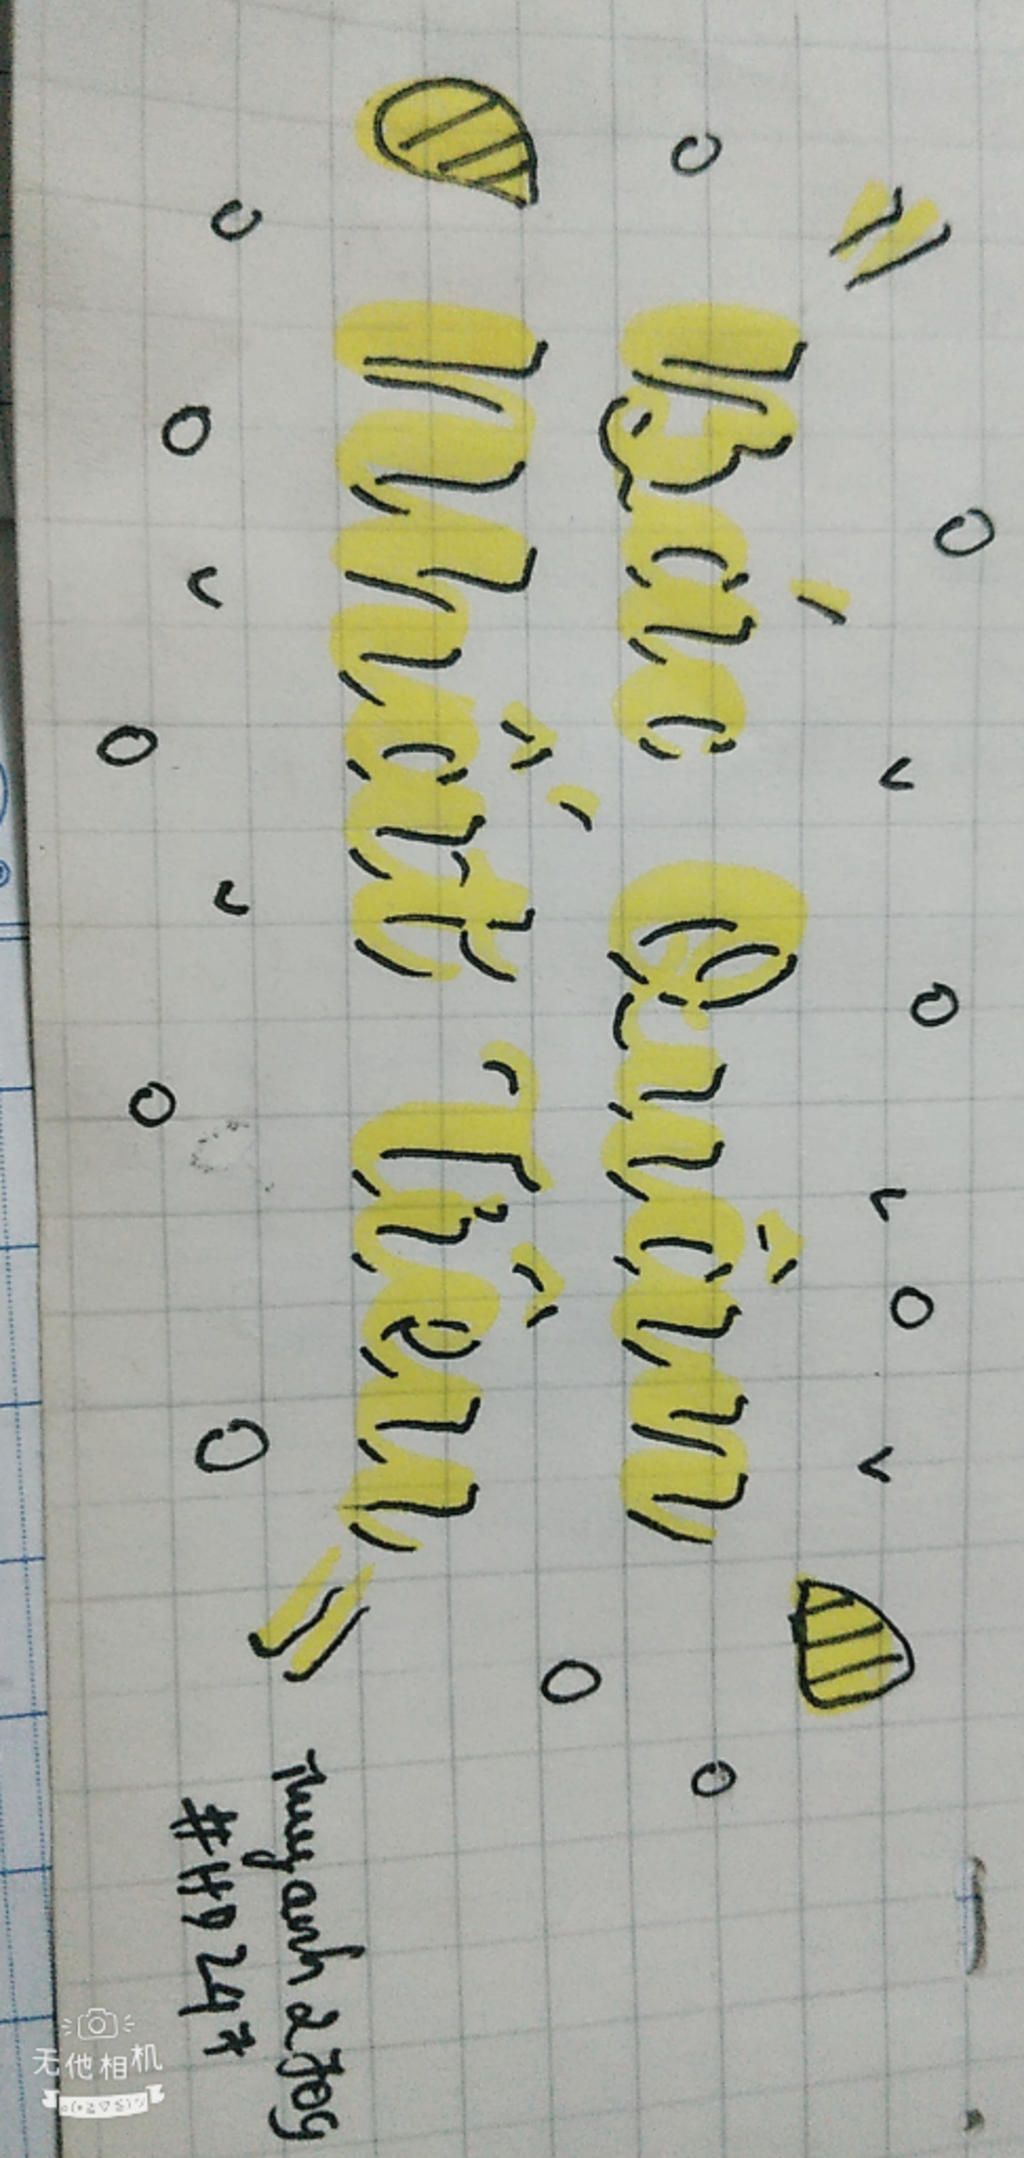 Bác Quâm
Nhất Tiên
Thuyanh2k09
#HD247
无他相机